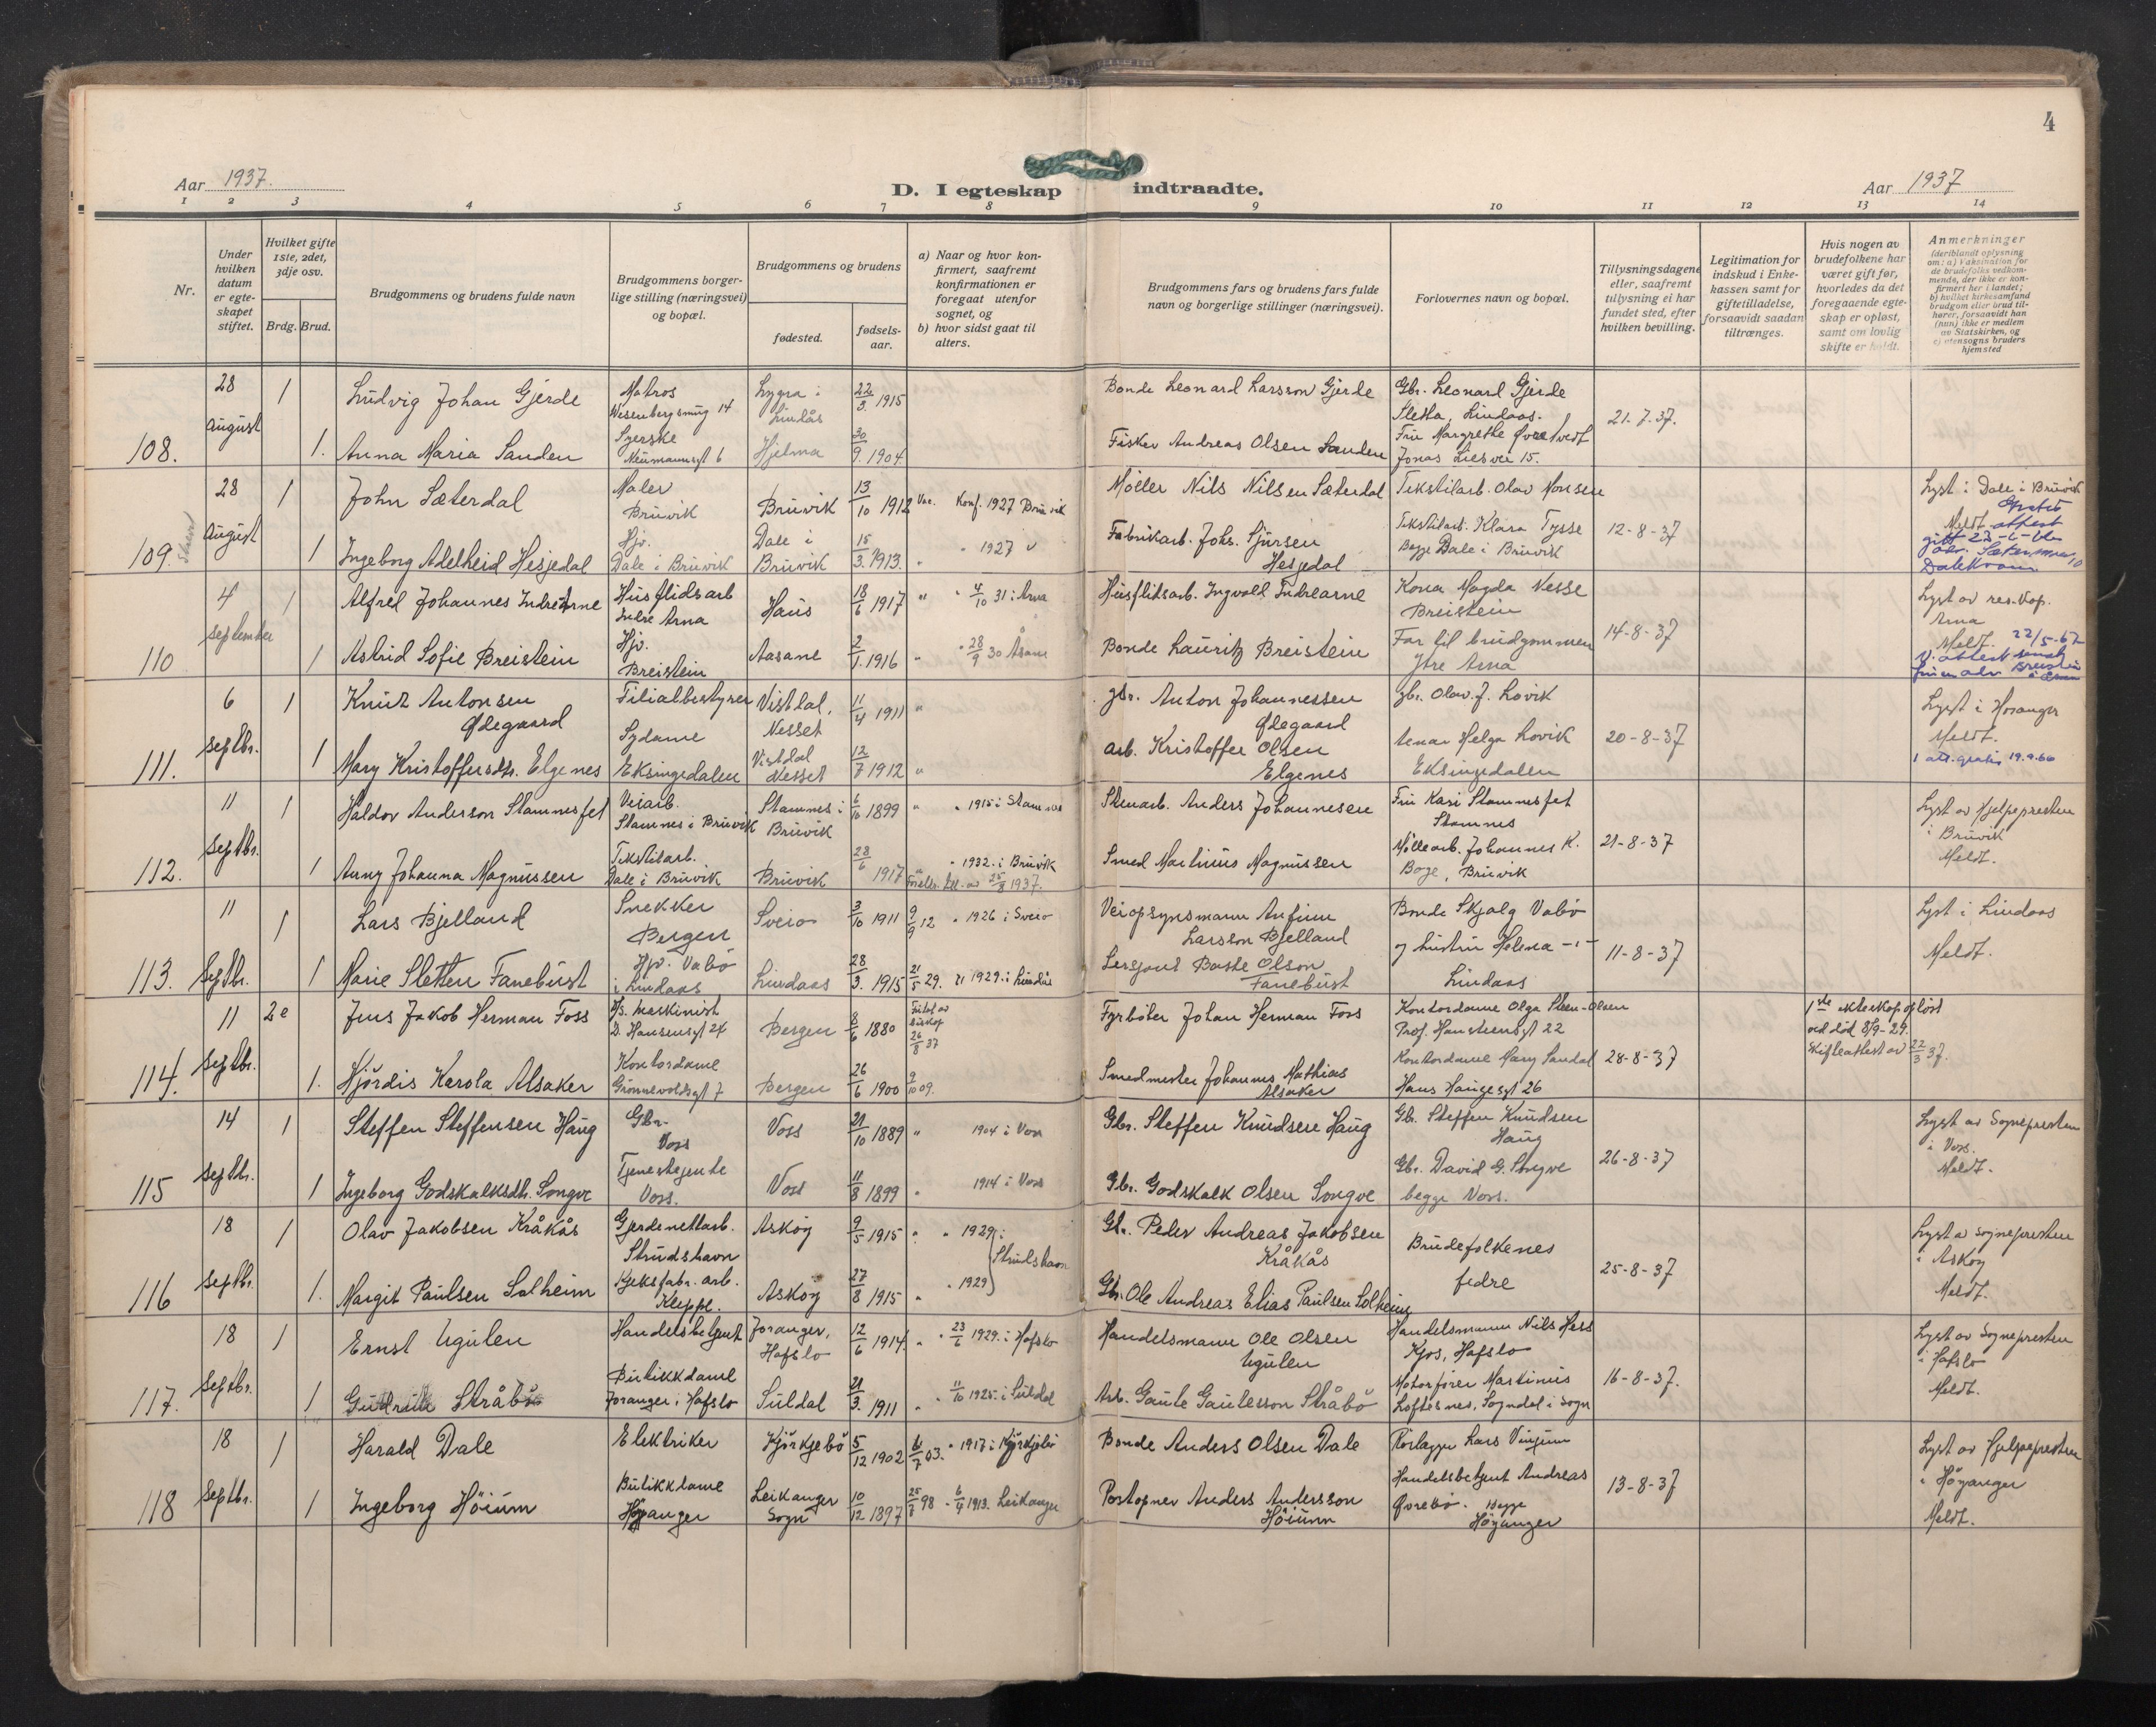 4
Aar 1937.
D. I egteskap indtraadte.
Aar 1937
1 2 3 4 5 6 7 8 9 10 11 12 13 14
Nr.
Under hvilken datum er egteskapet stiftet.
Hvilket gifte 1ste, 2det, 3dje osv.
Brdg. Brud.
Brudgommens og brudens fulde navn
Brudgommens borgerlige stilling (næringsvei) og bopæl.
Brudgommens og brudens
fødested.
fødselsaar.
a) Naar og hvor konfirmert, saafremt konfirmationen er foregaat utenfor sognet, og
b) hvor sidst gaat til alters.
Brudgommens fars og brudens fars fulde navn og borgerlige stillinger (næringsvei).
Forlovernes navn og bopæl.
Tillysningsdagene eller, saafremt tillysning ei har fundet sted, efter hvilken bevilling.
Legitimation for indskud i Enkekassen samt for giftetilladelse, forsaavidt saadan tiltrænges.
Hvis nogen av brudefolkene har været gift før, hvorledes da det foregaaende egteskap er opløst, samt om lovlig skifte er holdt.
Anmerkninger (deriblandt oplysning om: a) Vaksination for de brudefolks vedkommende, der ikke er konfirmert her i landet; b) hvilket kirkesamfund brudgom eller brud tilhører, forsaavidt han (hun) ikke er medlem av Statskirken, og c) utensogns bruders hjemsted
108. 28 August
1 Ludvig Johan Gjerde Matros Wesenbergsmug 14 Lygra i Lindås 22/3 1915 Bonde Leonard Larsson Gjerde Gbr. Leonard Gjerde Sletta, Lindaas. 21-7-37.
1. Anna Maria Sanden Syerske Neumannsgt 6 Hjelma 30/9 1904 Fisker Andreas Olsen Sanden Fru Margrethe Øvretvedt Jonas Liesvei 15.
109. 28 August
1 John Sæterdal Maler Bruvik Bruvik 13/10 1912 Vac. Konf. 1927 Bruvik Møller Nils Nilsen Sæterdal Tekstilarb. Olav Monsen 12-8-37 Lyst i Dale i Bruvik Meldt
1 Ingeborg Adelheid Hesjedal Hjv. Dale i Bruvik Dale i Bruvik 15/3 1913. " " 1927 " Fabrikarb. Johs. Sjursen Hesjedal Tekstilarb. Klara Tysse Begge Dale i Bruvik
110 4 september
1 Alfred Johannes Indre Arne Husflidsarb Indre Arna Haus 18/6 1917 " " 4/10 31 i Arna Husflitsarb. Ingvald Indrearne Kona Magda Nesse Breistein 14-8-37 Lyst av res. kap. Arna Meldt. 22/5-67
1 Astrid Sofie Breistein Hjv. Breistein Aasane 2/1. 1916 " " 28/9 30 Åsane Bonde Lauritz Breistein Far til brudgommen Ytre Arna
111. 6 septbr.
1 Knut Antonsen Ødegaard Filialbestyrer Vistdal, Nesset 11/4 1911 " gbr. Anton Johannessen Ødegaard gbr. Olav. J. Lovik 20-8-37 Lyst i Hosanger Meldt.
1 Mary Kristoffersdtr. Elgenes Sydame Eksingedalen Vistdal Nesset 12/7 1912 " arb. Kristoffer Olsen Elgenes Helga Lovik Eksingedalen 1 att. gratis 19.9.66
112. 11 septbr.
1 Haldor Anderson Stamnesfet Veiarb. Stamnes i Bruvik Stamnes i Bruvik 6/10 1899 " " 1915 i Stamnes Stenarb. Anders Johannesen Fru Kari Stamnesfet Stamnes 21-8-37 Lyst av Hjelpepresten i Bruvik Meldt.
1 Anny Johanna Magnussen Tekstilarb. Dale i Bruvik Bruvik 28/6 1917 " " 1932. i Bruvik Smed Martinus Magnussen Møllearb. Johannes K. Boge, Bruvik
113. 11 Septbr.
1 Lars Bjelland Snekker Bergen Sveio 3/10 1911 9/9 12 " 1926 i Sveio Veiopsynsmann Anfinn Larsson Bjelland Bonde Skjalg Vabø 11-8-37 Lyst i Lindaas Meldt.
1 Marie Sletten Fanebust Hjv. Vabø i Lindaas Lindaas 28/3. 1915 21/5 29. 1929. i Lindås Sersjant Baste Olson Fanebust og hustru Helena -"- Lindaas
114. 11 septbr.
2e Jens Jakob Herman Foss maskinist D. Hansensgt 24 Bergen 8/6 1880 Fritat av biskop 26/8 37 Fyrbøter Johan Herman Foss Kontordame Olga Steen-Olsen Prof. Hansteensgt 22 28-8-37 1ste ekteskap opløst ved død 8/9-29. Skifteattest av 22/3 37.
1. Hjördis Karola Alsaker Kontordame Grønnevoldsgt 7 Bergen 26/6 1900 9/10 09. Smedmester Johannes Mathias Alsaker Kontordame Mary Sandal Hans Haugesgt 26
115 14 septbr.
1 Steffen Steffensen Haug Gbr. Voss Voss 21/10 1889 " 1904 i Voss Gbr. Steffen Knudsen Haug Gbr. Steffen Knudsen Haug 26-8-37 Lyst av Sognepresten i Voss. Meldt.
1 Ingeborg Godskalksdtr. Songve Tjenestejente Voss. Voss 11/8 1899 " 1914 i Voss Gbr. Godskalk Olsen Songve Gbr. David G. Songve begge Voss.
116 18 septbr.
1 Olav Jakobsen Kråkås Gjerdenettarb. Strudshavn Askøy 9/5 1915 " " 1929 i Strudshavn Gbr. Peder Andreas Jakobsen Kråkås Brudefolkenes fedre 25-8-37 Lyst av sognepresten i Askøy Meldt.
1. Margit Paulsen Solheim Kjeksfabr. arb. Kleppe. Askøy 27/8 1915 " " 1929 Gbr. Ole Andreas Elias Paulsen Solheim
117. 18 Septbr.
1 Ernst Ugulen Handelsbetjent Joranger, Hafslo 12/6 1914. " " 23/6 1929. i Hafslo Handelsmann Ole Olsen Ugulen Handelsmann Nils Hess Kjos, Hafslo 16-8-37. Lyst av Sognepresten i Hafslo Meldt.
1 Stråbø Butikkdame Joranger i Hafslo Suldal 21/3. 1911 " " 11/10 1925. i Suldal Arb. Gaute Gautesson Stråbø Motorfører Martinus Loftesnes, Sogndal i Sogn
118 18 Septbr.
1 Harald Dale Elektriker Kyrkjebø 5/12 1902 6/7 03. " 1917 i Kyrkjebø Bonde Anders Olsen Dale Rørlegger Lars Vinjum 13-8-37 Lyst av Hjelpepresten i Høyanger Meldt.
1 Ingeborg Höium Butikkdame Høyanger Leikanger Sogn 10/12 1897 25/8 98 " 6/4 1913. Leikanger Postopner Anders Andersson Höium Handelsbetjent Andreas Øvrebø. Begge Høyanger